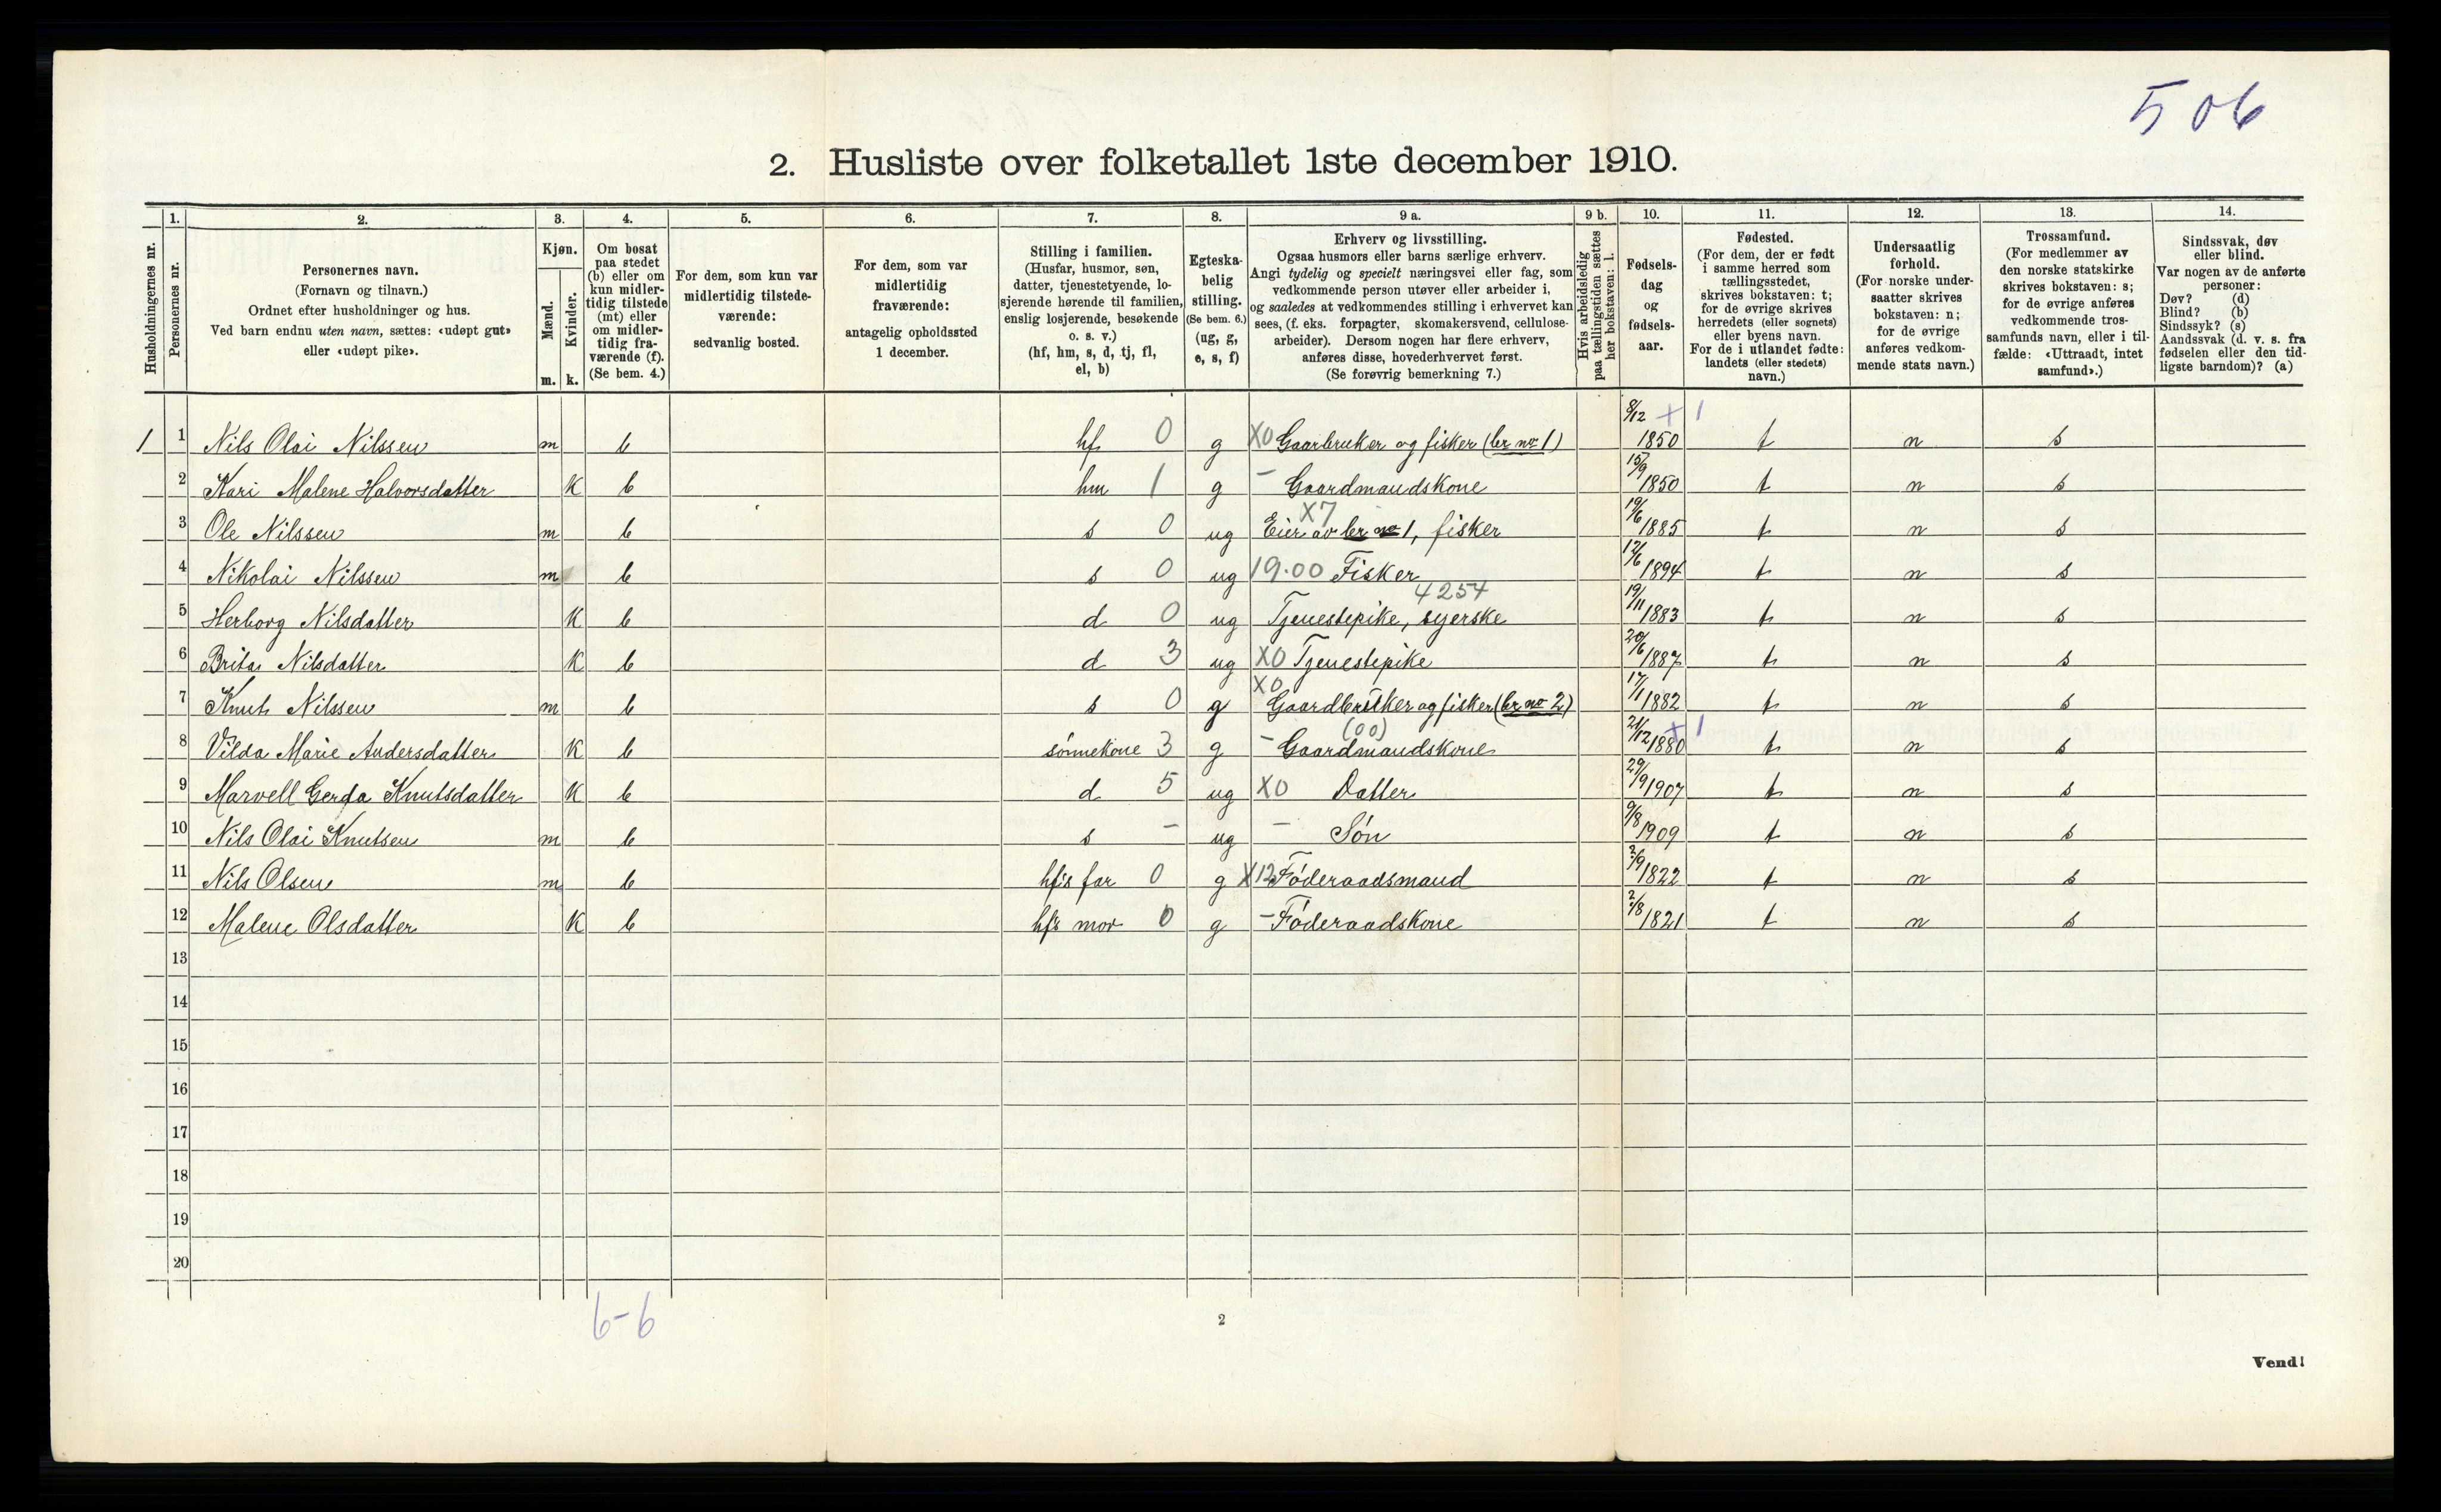 506
2. Husliste over folketallet 1ste december 1910.
Husholdningernes nr.
1.
Personernes nr.
2.
Personernes navn.
(Fornavn og tilnavn.)
Ordnet efter husholdninger og hus.
Ved barn endnu uten navn, sættes: «udøpt gut»
eller «udøpt pike».
3.
Kjøn.
Mænd.
Kvinder.
m. k.
4.
Om bosat
paa stedet
(b) eller om
kun midler-
tidig tilstede
(mt) eller
om midler-
tidig fra-
værende (f).
(Se bem. 4.)
5.
For dem, som kun var
midlertidig tilstede-
værende:
sedvanlig bosted.
6.
For dem, som var
midlertidig
fraværende:
antagelig opholdssted
1 december.
7.
Stilling i familien.
(Husfar, husmor, søn,
datter, tjenestetyende, lo-
sjerende hørende til familien,
enslig losjerende, besøkende
o. s. v.)
(hf, hm, s, d, tj, fl,
el, b)
8.
Egteska-
belig
stilling.
(Se bem. 6.)
(ug, g,
e, s, f)
9 a.
Erhverv og livsstilling.
Ogsaa husmors eller barns særlige erhverv.
Angi tydelig og specielt næringsvei eller fag, som
vedkommende person utøver eller arbeider i,
og saaledes at vedkommendes stilling i erhvervet kan
sees, (f. eks. forpagter, skomakersvend, cellulose-
arbeider). Dersom nogen har flere erhverv,
anføres disse, hovederhvervet først.
(Se forøvrig bemerkning 7.)
9 b.
Hvis arbeidsledig
paa tællingstiden sættes
her bokstaven: l.
10.
Fødsels-
dag
og
fødsels-
aar.
11.
Fødested.
(For dem, der er født
i samme herred som
tællingsstedet,
skrives bokstaven: t;
for de øvrige skrives
herredets (eller sognets)
eller byens navn.
For de i utlandet fødte:
landets (eller stedets)
navn.)
12.
Undersaatlig
forhold.
(For norske under-
saatter skrives
bokstaven: n;
for de øvrige
anføres vedkom-
mende stats navn.)
13.
Trossamfund.
(For medlemmer av
den norske statskirke
skrives bokstaven: s;
for de øvrige anføres
vedkommende tros-
samfunds navn, eller i til-
fælde: «Uttraadt, intet
samfund».)
14.
Sindssvak, døv
eller blind.
Var nogen av de anførte
personer:
Døv? (d)
Blind? (b)
Sindssyk? (s)
Aandssvak (d. v. s. fra
fødselen eller den tid-
ligste barndom)? (a)
1 1 Nils Olai Nilssen m b hf 0 g X0 Gaarbruker og fisker (br no 1) 8/12 1850 + 1 t n s
2 Kari Malene Halvorsdatter K b hm 1 g – Gaardmandskone 15/9 1850 t n s
3 Ole Nilssen m b s 0 ug X7 Eier av br no 1, fisker 19/6 1885 t n s
4 Nikolai Nilssen m b s 0 ug 19.00 Fisker 12/6 1894 t n s
5 Herborg Nilsdatter K b d 0 ug Tjenestepike, syerske 4257 19/11 1883 t n s
6 Brita Nilsdatter K b d 3 ug X0 Tjenestepike 20/6 1887 t n s
7 Knut Nilssen m b s 0 g X0 Gaardbruker og fisker (br no 2) 17/1 1882 t n s
8 Vilda Marie Andersdatter K b sønnekone 3 g – (00) Gaardmandskone 21/12 1880 + 1 t n s
9 Marvell Gerda Knutsdatter K b d 5 ug X0 Datter 29/9 1907 t n s
10 Nils Olai Knutsen m b s – ug – Søn 9/8 1909 t n s
11 Nils Olsen m b hfs far 0 g X12 Føderaadsmand 2/9 1822 t n s
12 Malene Olsdatter K b hfs mor 0 g – Føderaadskone 2/8 1821 t n s
13
14
15
16
17
18
19
20
6-6
2
Vend!